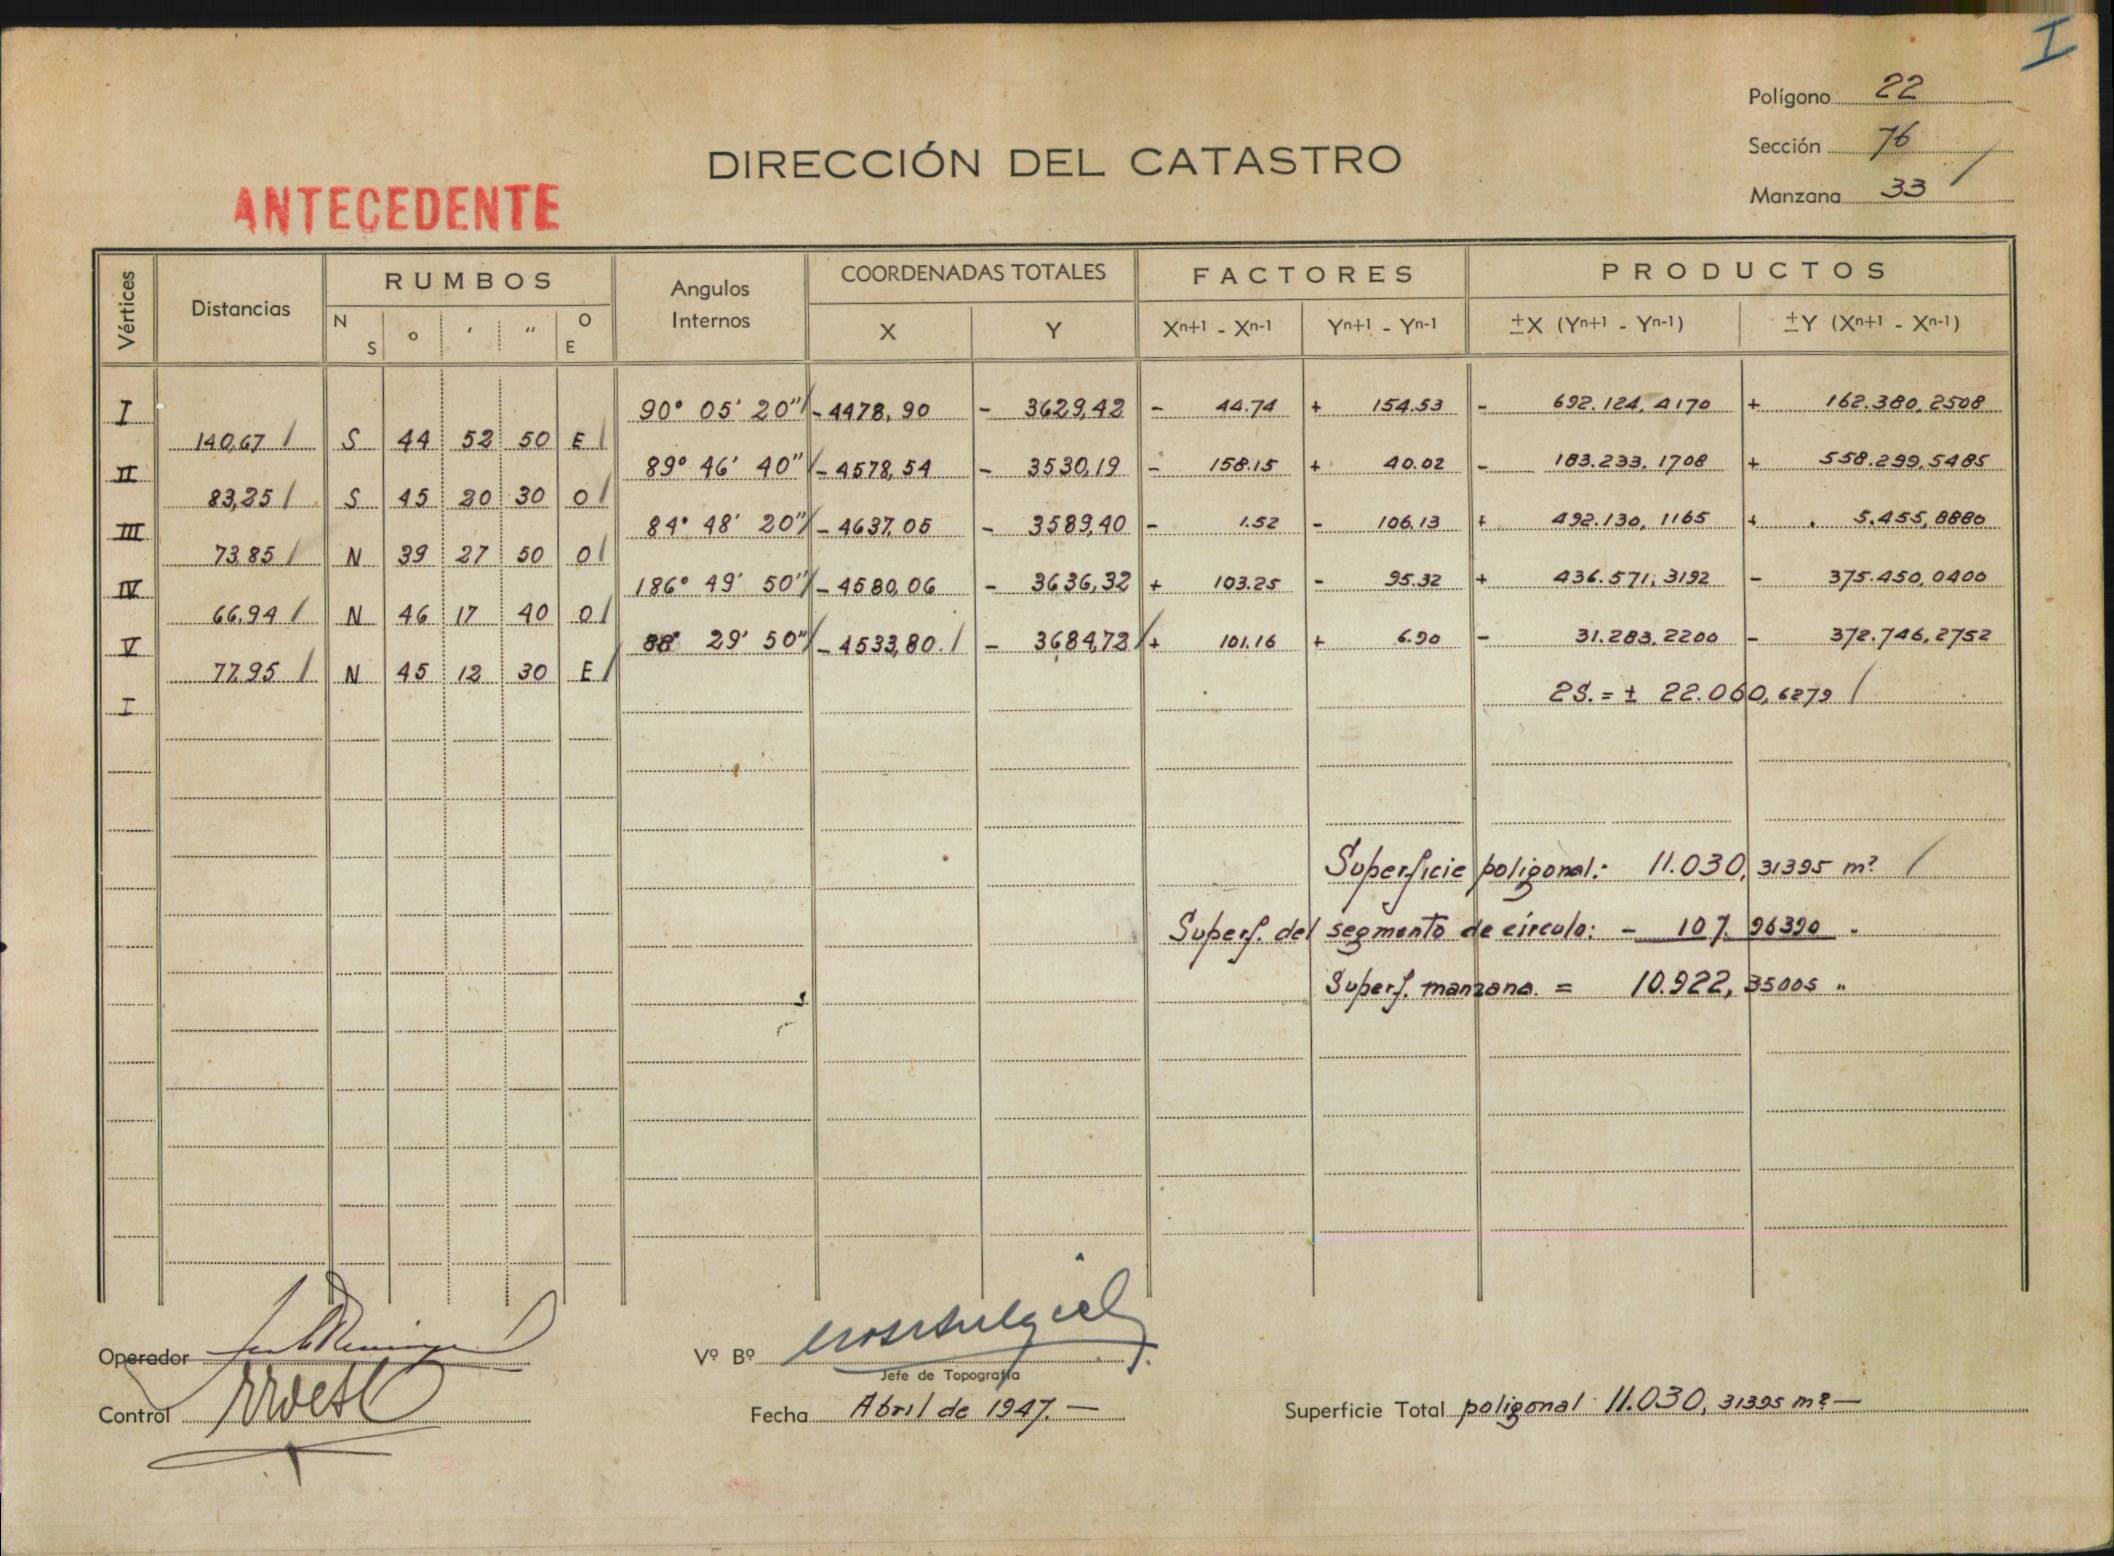 I
Polígono 22
Sección 76
Manzana 33
DIRECCIÓN DEL CATASTRO
ANTECEDENTE
Vértices
Distancias
RUMBOS
N S o ʹ ʺ O E
Angulos Internos
COORDENADAS TOTALES
X Y
FACTORES
Xn+1 - Xn-1 Yn+1 - Yn-1
PRODUCTOS
±X (Yn+1 - Yn-1) ±Y (Xn+1 - Xn-1)
I 90° 05' 20" / - 4478,90 - 3629,42 - 44.74 + 154.53 - 692.124,4170 + 162.380,2508
140,67 / S 44 52 50 E /
II 89° 46' 40" / - 4578,54 - 3530,19 - 158.15 + 40.02 - 183.233,1708 + 558.299,5485
83,25 / S 45 20 30 O /
III 84° 48' 20" / - 4637,05 - 3589,40 - 1.52 - 106.13 + 492.130,1165 + 5.455,8880
73,85 / N 39 27 50 O /
IV 186° 49' 50" / - 4580,06 - 3636,32 + 103.25 - 95.32 + 436.571,3192 - 375.450,0400
66,94 / N 46 17 40 O /
V 88° 29' 50" / - 4533,80 / - 3684,72 / + 101.16 + 6.90 - 31.283,2200 - 372.746,2752
77,95 / N 45 12 30 E /
I
2S. = ± 22.060,6279 /
Superficie poligonal:- 11.030,31395 m² /
Superf. del segmento de círculo: - 107.96390 "
Superf. manzana. = 10.922,35005 "
Operador
Vº Bº
Jefe de Topografía
Control
Fecha Abril de 1947.—
Superficie Total poligonal 11.030,31395 m²—